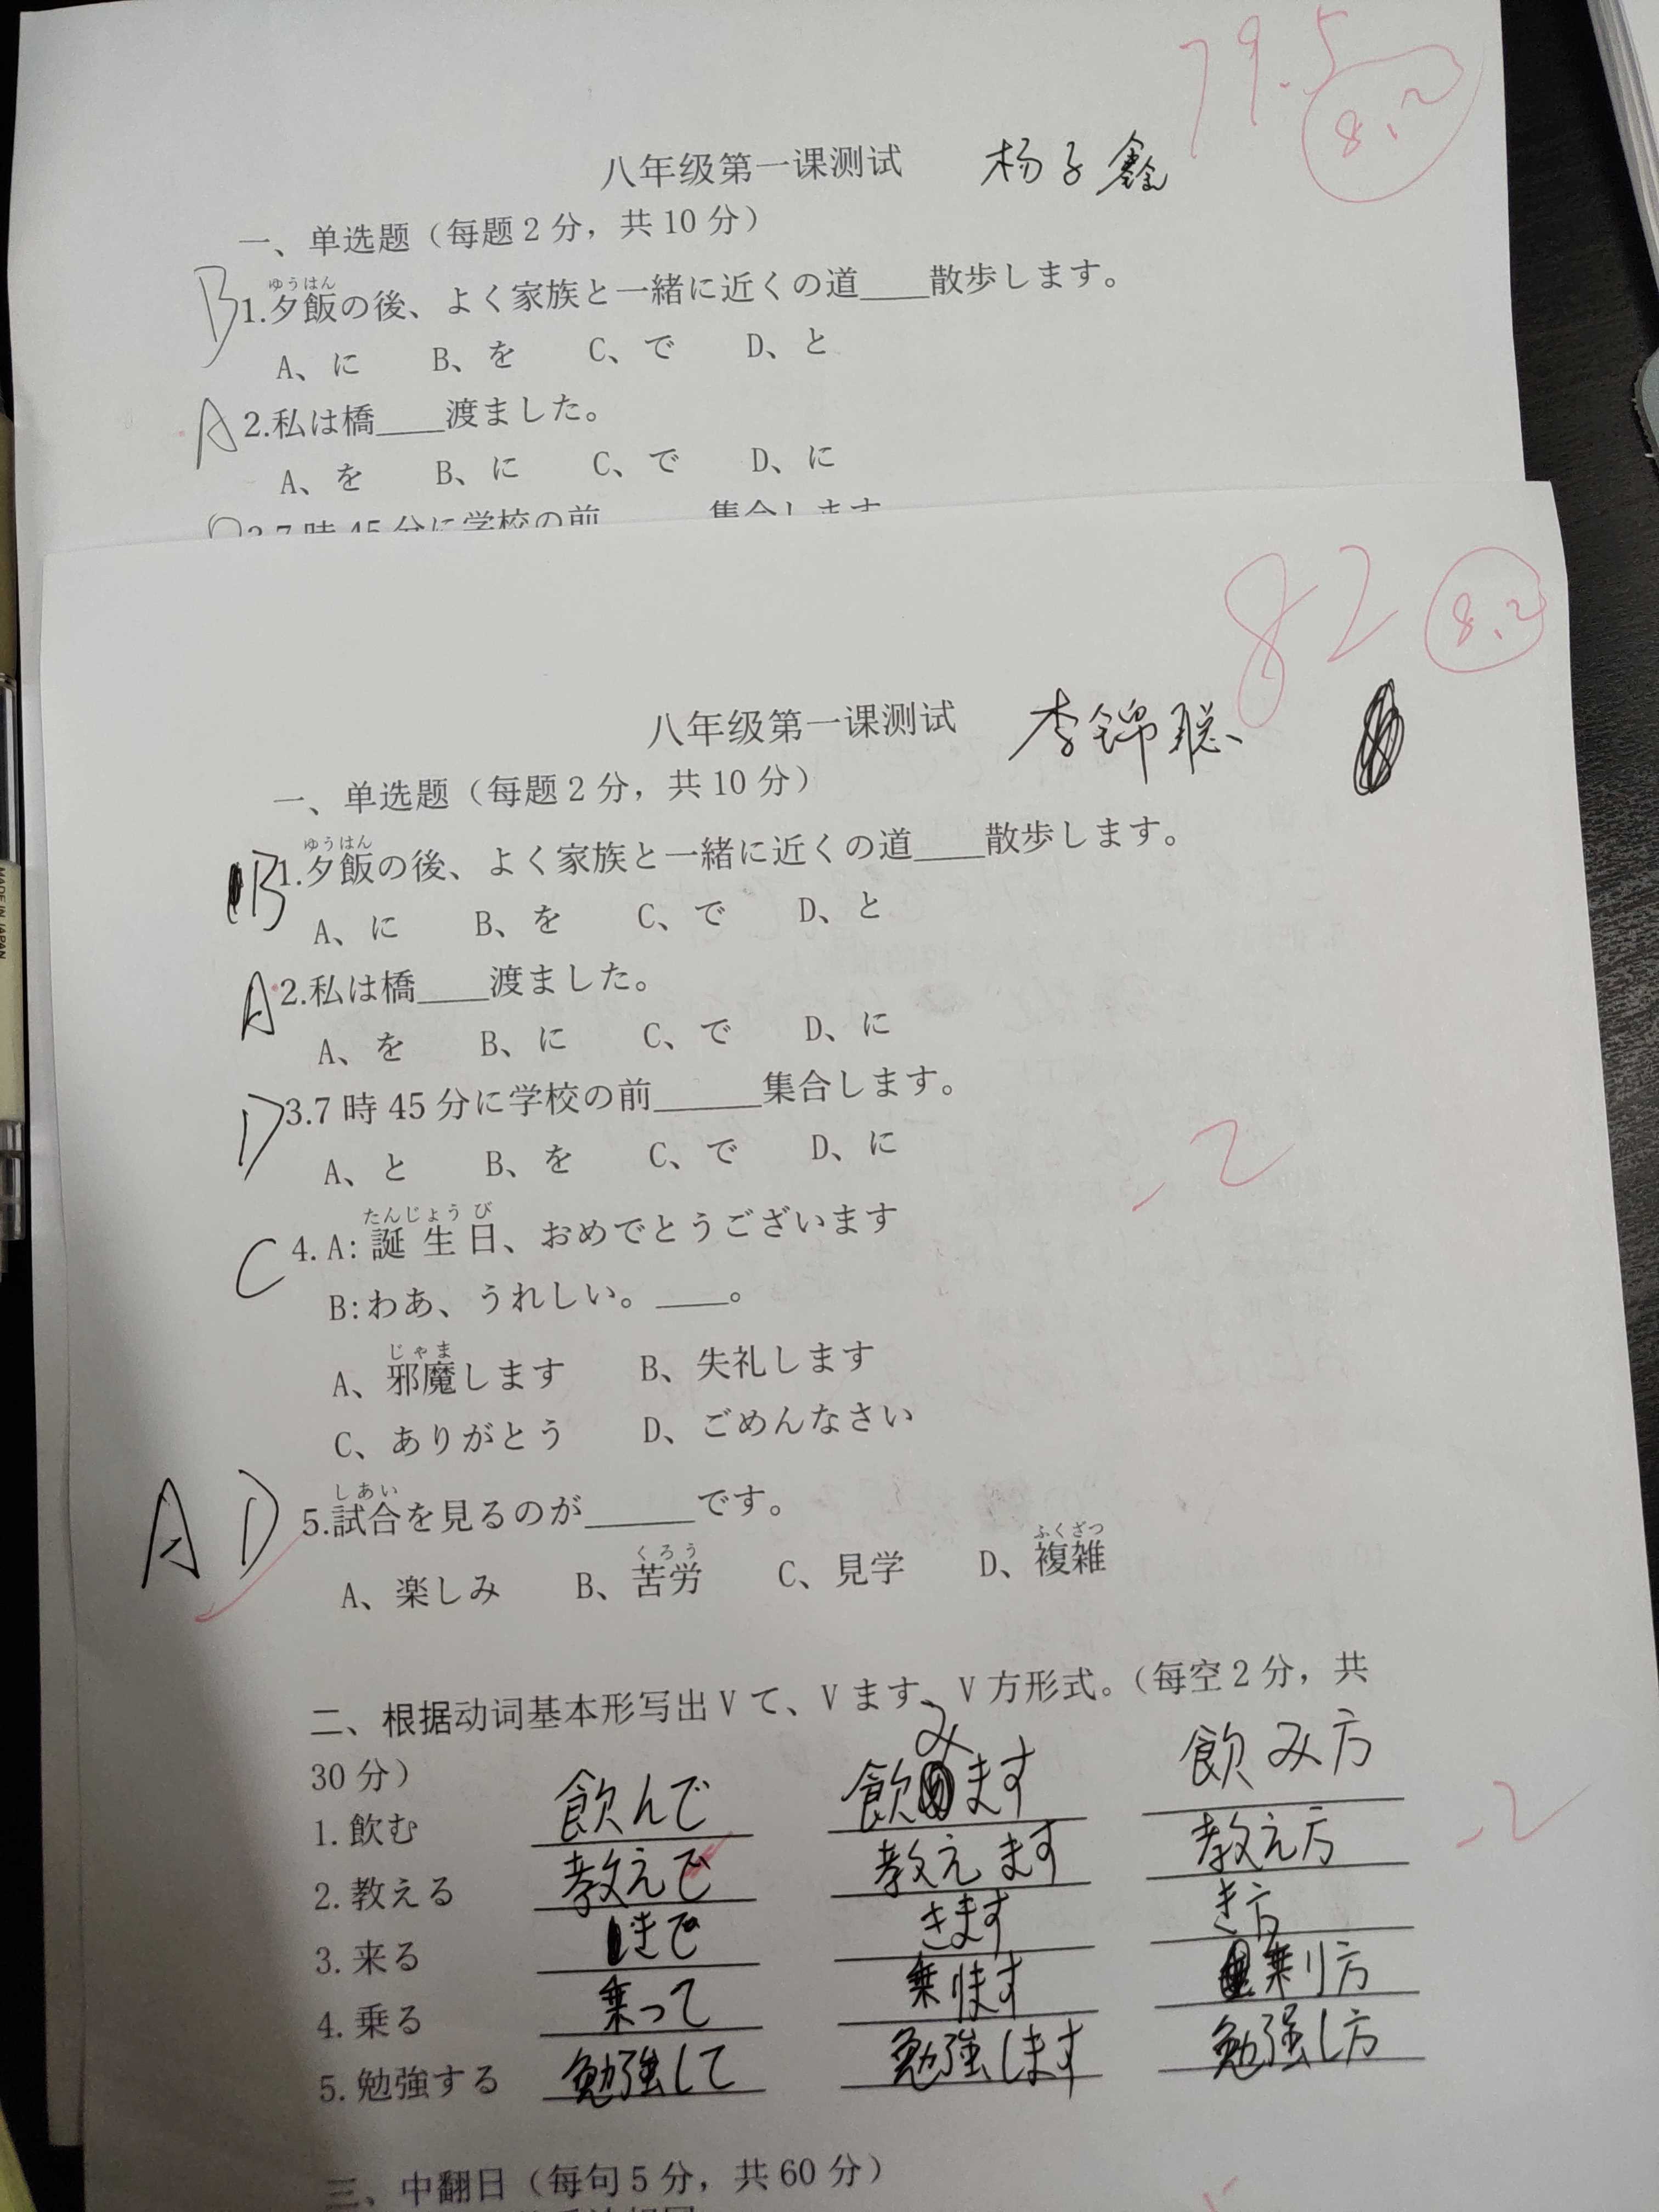 79.5
8.2
八年级第一课测试 杨子鑫
一、单选题（每题2分，共10分）
ゆうはん
B 1.夕飯の後、よく家族と一緒に近くの道____散歩します。
A、に B、を C、で D、と
A 2.私は橋____渡ました。
A、を B、に C、で D、に
3.7時45分に学校の前______集合します
82
8.2
八年级第一课测试 李锦聪
一、单选题（每题2分，共10分）
ゆうはん
B 1.夕飯の後、よく家族と一緒に近くの道____散歩します。
A、に B、を C、で D、と
A 2.私は橋____渡ました。
A、を B、に C、で D、に
D 3.7時45分に学校の前______集合します。
-2
A、と B、を C、で D、に
たんじょう び
C 4. A: 誕生日、おめでとうございます
B:わあ、うれしい。____。
じゃま
A、邪魔します B、失礼します
C、ありがとう D、ごめんなさい
しあい
A D 5.試合を見るのが______です。
くろう ふくざつ
A、楽しみ B、苦労 C、見学 D、複雑
二、根据动词基本形写出V て、V ます、V 方形式。（每空2分，共
30分）
1. 飲む 飲んで 飲みます 飲み方
-2
2. 教える 教えで 教えます 教え方
3. 来る きて きます き方
4. 乗る 乗って 乗ります 乗り方
5. 勉強する 勉強して 勉強します 勉強し方
三、中翻日（每句5分，共60分）